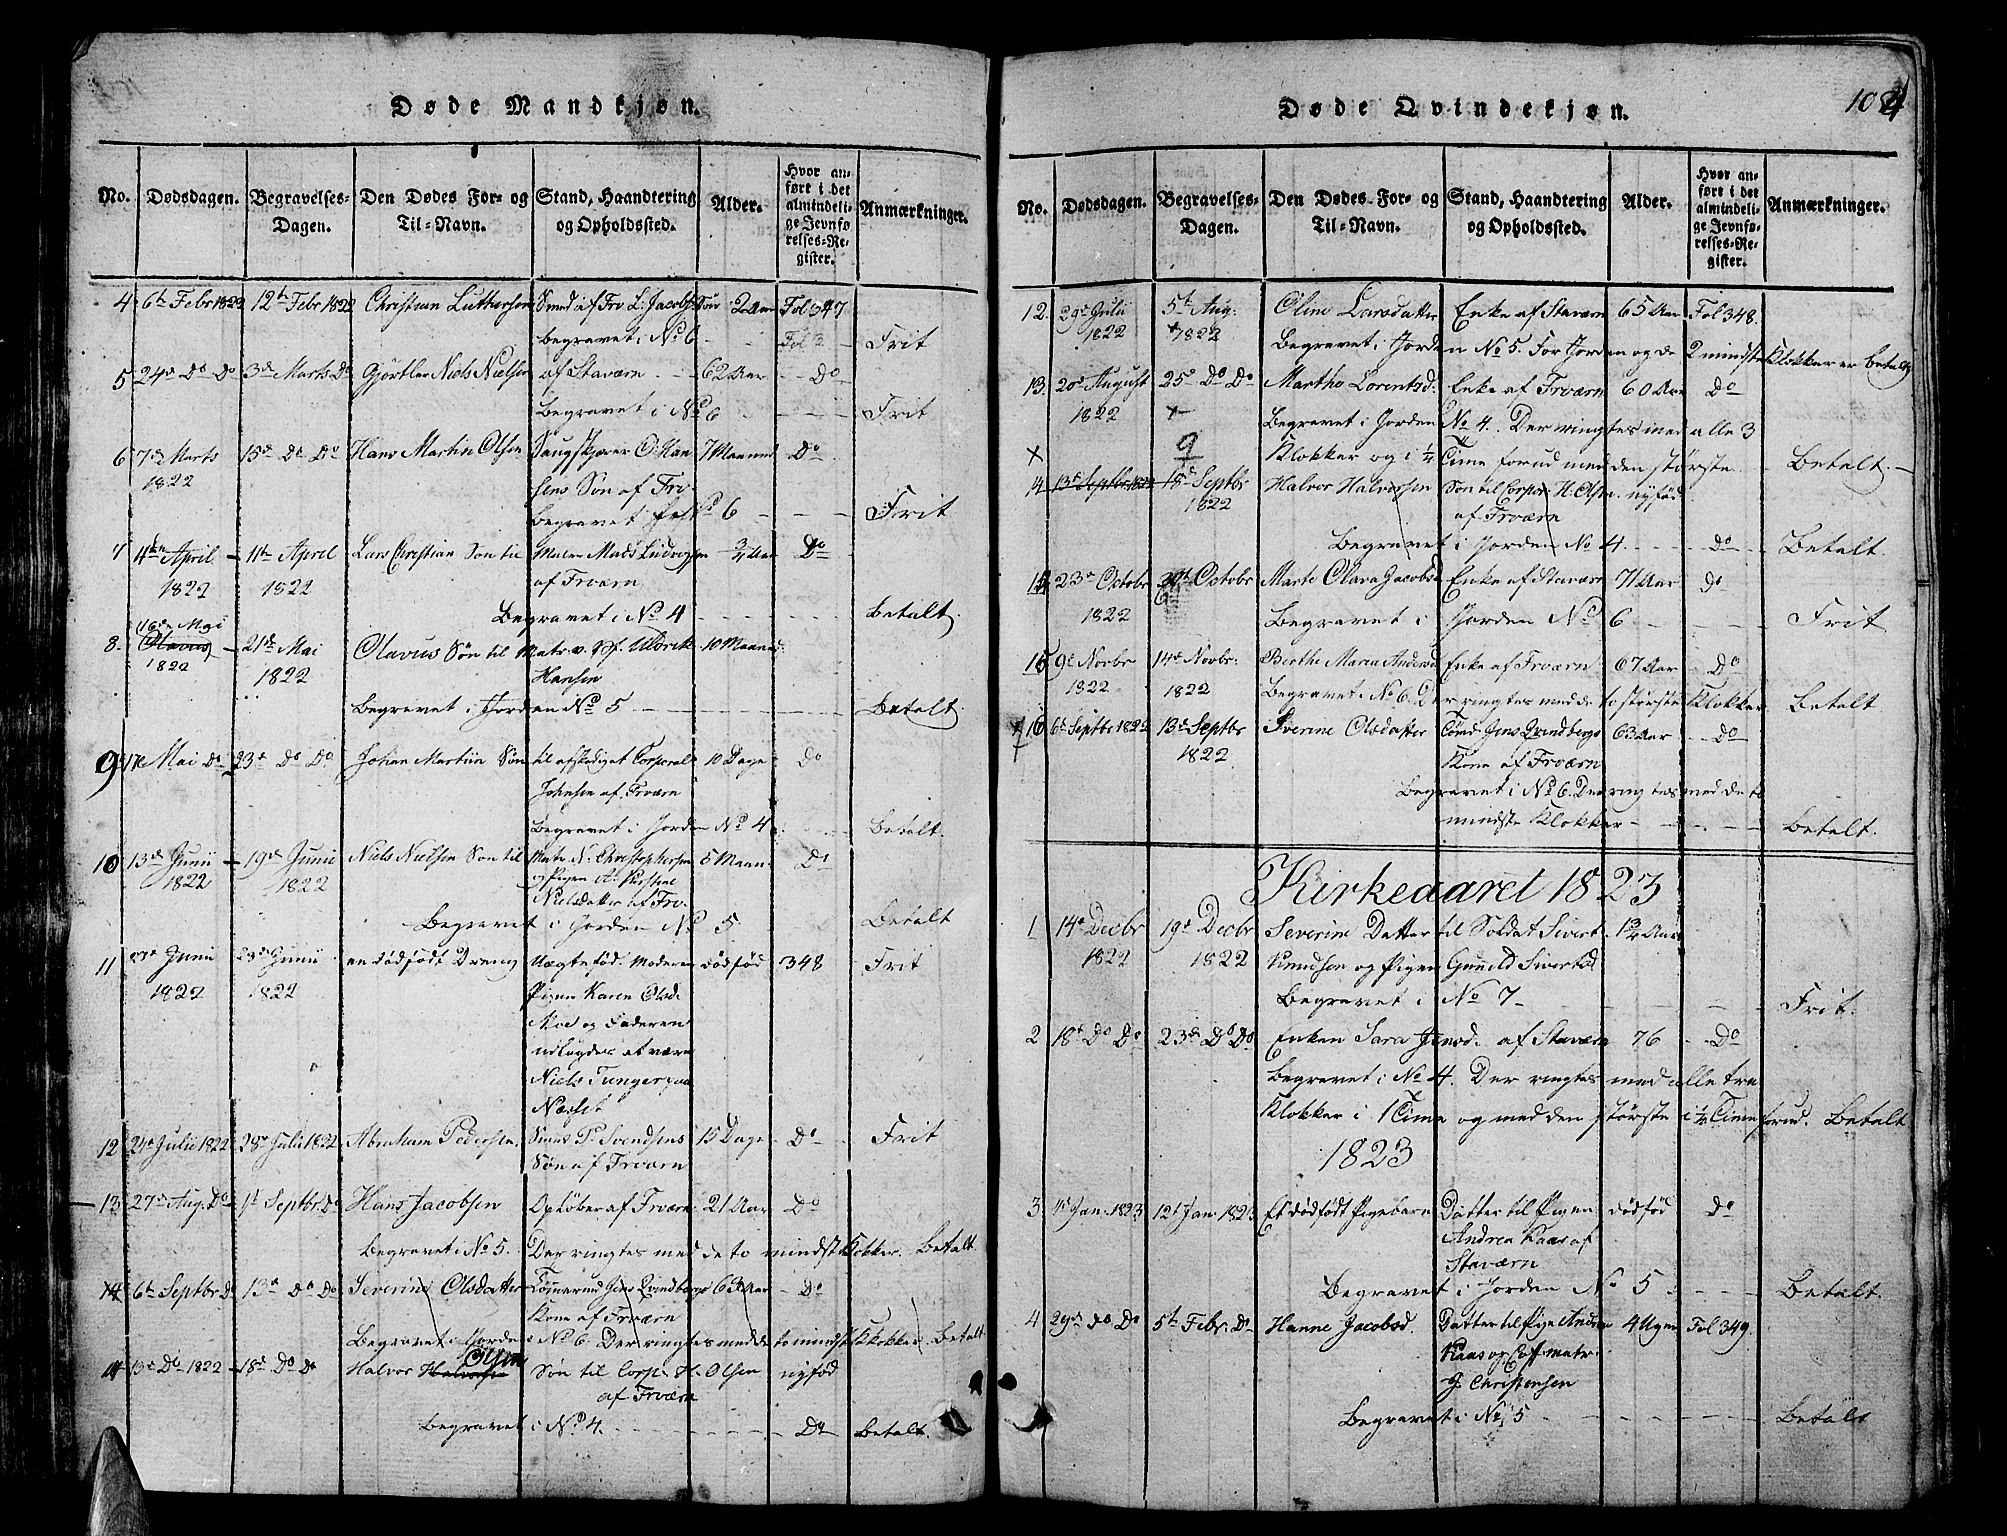 Døde Mandkjøn.
No. Dødsdagen. Begravelses-Dagen. Den Dødes For- og Til-Navn. Stand, Haandtering og Opholdssted. Alder. Hvor anført i det almindelige Jevnførelses-Register. Anmærkninger.
4 6te Febr 1822 12te Febr 1822 Christian Luthersen Smed af Frv L. Jacobs Søn 2 Aar Fol 347
Begravet i No 6 - - Fol 3 - Frit
5 24de Do Do 3de Marts Do Gjørtler Niels Nielsen af Staværn - - 62 Aar - - Do
Begravet i No 6 - - - - Frit
6 7de Marts 15de Do Do Hans Martin Olsen O: Han 7 Maaned Do
1822 sens Søn af Frv-
Begravet No 6 - - - Frit
7 4de April - 11te April Lars Christian Søn til Mads Ludvigsen 3/4 Aar Do
1822 1822 af Frværn
Begravet i No 4 - - - - Betalt.
16de Mai
8. Olavus - 21de Mai Olavus Søn til Matr. v. Ulbrik 10 Maaned
1822 1822 Hansen
Begravet i Jorden No 5 - - - - Betalt.
9 17de Mai Do 23de Do Do Johan Martin Søn til afskediget Corporal 10 Dage Do
Johnsen af Frværn
Begravet i Jorden No 4 Betalt.
10 13de Junii - 19de Junii Niels Nielsen Søn til Matr. N. Christophersen 5 Maan: Do
1822 1822 og Pigen A: Kirstine
Nielsdatter af Frv-
Begravet i Jorden No 5 Betalt
11 Junii 23de Junii en dødfødt Dreng Uægtefød. Moderen dødfød 348 - Frit
1822 1822 Pigen Karen Olsd.
Moe og Faderen
udlagdes at være
Niels Tunger paa
12 24de Julii 1822 28de Juli 1822 Abraham Pedersen, P. Svendsens 15 Dage Do - Frit
Søn af Frværn
13 27de Aug. Do 1t Septbr. Do Hans Jacobsen Opløber af Frværn 21 Aar Do
Begravet i No 5. Der ringtes med de to mindste Klokker. Betalt
14 6te Septbr Do 13de Do Do Severine Olsdatter Tømmermd Jens Qvindbergs 63 Aar - Do
Kone af Frværn
Begravet i Jorden i No 6. Der ringtes med de to mindste Klokker. Betalt
14 13de Do 1822 - 18de Do Do Halvor Halvorsen Olsen Søn til Corp. H. Olsen nyfød
af Frværn
Begravet i No 4. - - - - Do Betalt.
Døde Qvindekjøn.
104
No. Dødsdagen. Begravelses-Dagen. Den Dødes For- og Til-Navn. Stand, Haandtering og Opholdssted. Alder. Hvor anført i det almindelige Jevnførelses-Register. Anmærkninger.
12. 29de Julii 5te Aug: Oline Larsdatter Enke af Staværn 65 Aar Fol 348.
1822 1822 Begravet i Jorden No 5. For Jorden og de 2 mindste Klokker er betalt
13. 20de August 25de Do Do Marthe Lorentzd: Enke af Frværn 60 Aar Do
1822 Begravet i Jorden No 4. Der ringtes med alle 3
x 9 Klokker og i 1/4 Time forud med den største - Betalt. -
14 13de Septbr 1822 18de Septbr Halvor Halvorsen Søn til Corpor: H. Olsen nyfød
1822 af Frværn
Begravet i Jorden No 4. - - - Do - Betalt.
14 23de Octobr 30te Octobr Marte Olava Jacobsd Enke af Staværn 71 Aar Do
1822 Begravet i Jorden No 6 - - - - Frit
15 9de Novbr 14de Novbr: Berthe Maria Andersd Enke af Frværn 67 Aar - Do
1822 1822 Begravet i No 6. Der ringtes med de to største Klokker Betalt
16 6te Septbr 1822 13de Septbr Sverine Olsdatter Tømd Jens Qvindbergs 63 Aar - - Do
1822 Kone af Frværn
Begravet i No 6. Der ringtes med de to
mindste Klokker - - - - Betalt.
Kirkeaaret 1823
1 14de Decbr 19de Decbr Severine Datter til Soldat Sivert 1 3/4 Aar
1822 1822 Knudsen og Pigen Gunild Sivertsd
Begravet i No 7 - - - - Frit.
2 18de Do Do 23de Do Do Enken Sara Jensd. af Staværn 76 - Do
Begravet i No 4. Der ringtes med alle tre
Klokker i 1 Time og med den største i 1/4 Time forud. Betalt
1823
3 Jan. 1823 12te Jan 1823 Et dødfødt Pigebarn Datter til Pigen dødfød Do
Andrea Kaas af
Staværn
Begravet i Jorden No 5 - - - - Betalt.
4 29de Do Do 5te Febr. Do Hanne Jacobsd. Datter til Pige Andrea 4 Uger Fol 349.
Kaas og af matr.
J. Christensen
Begravet i No 5 - - - - Betalt